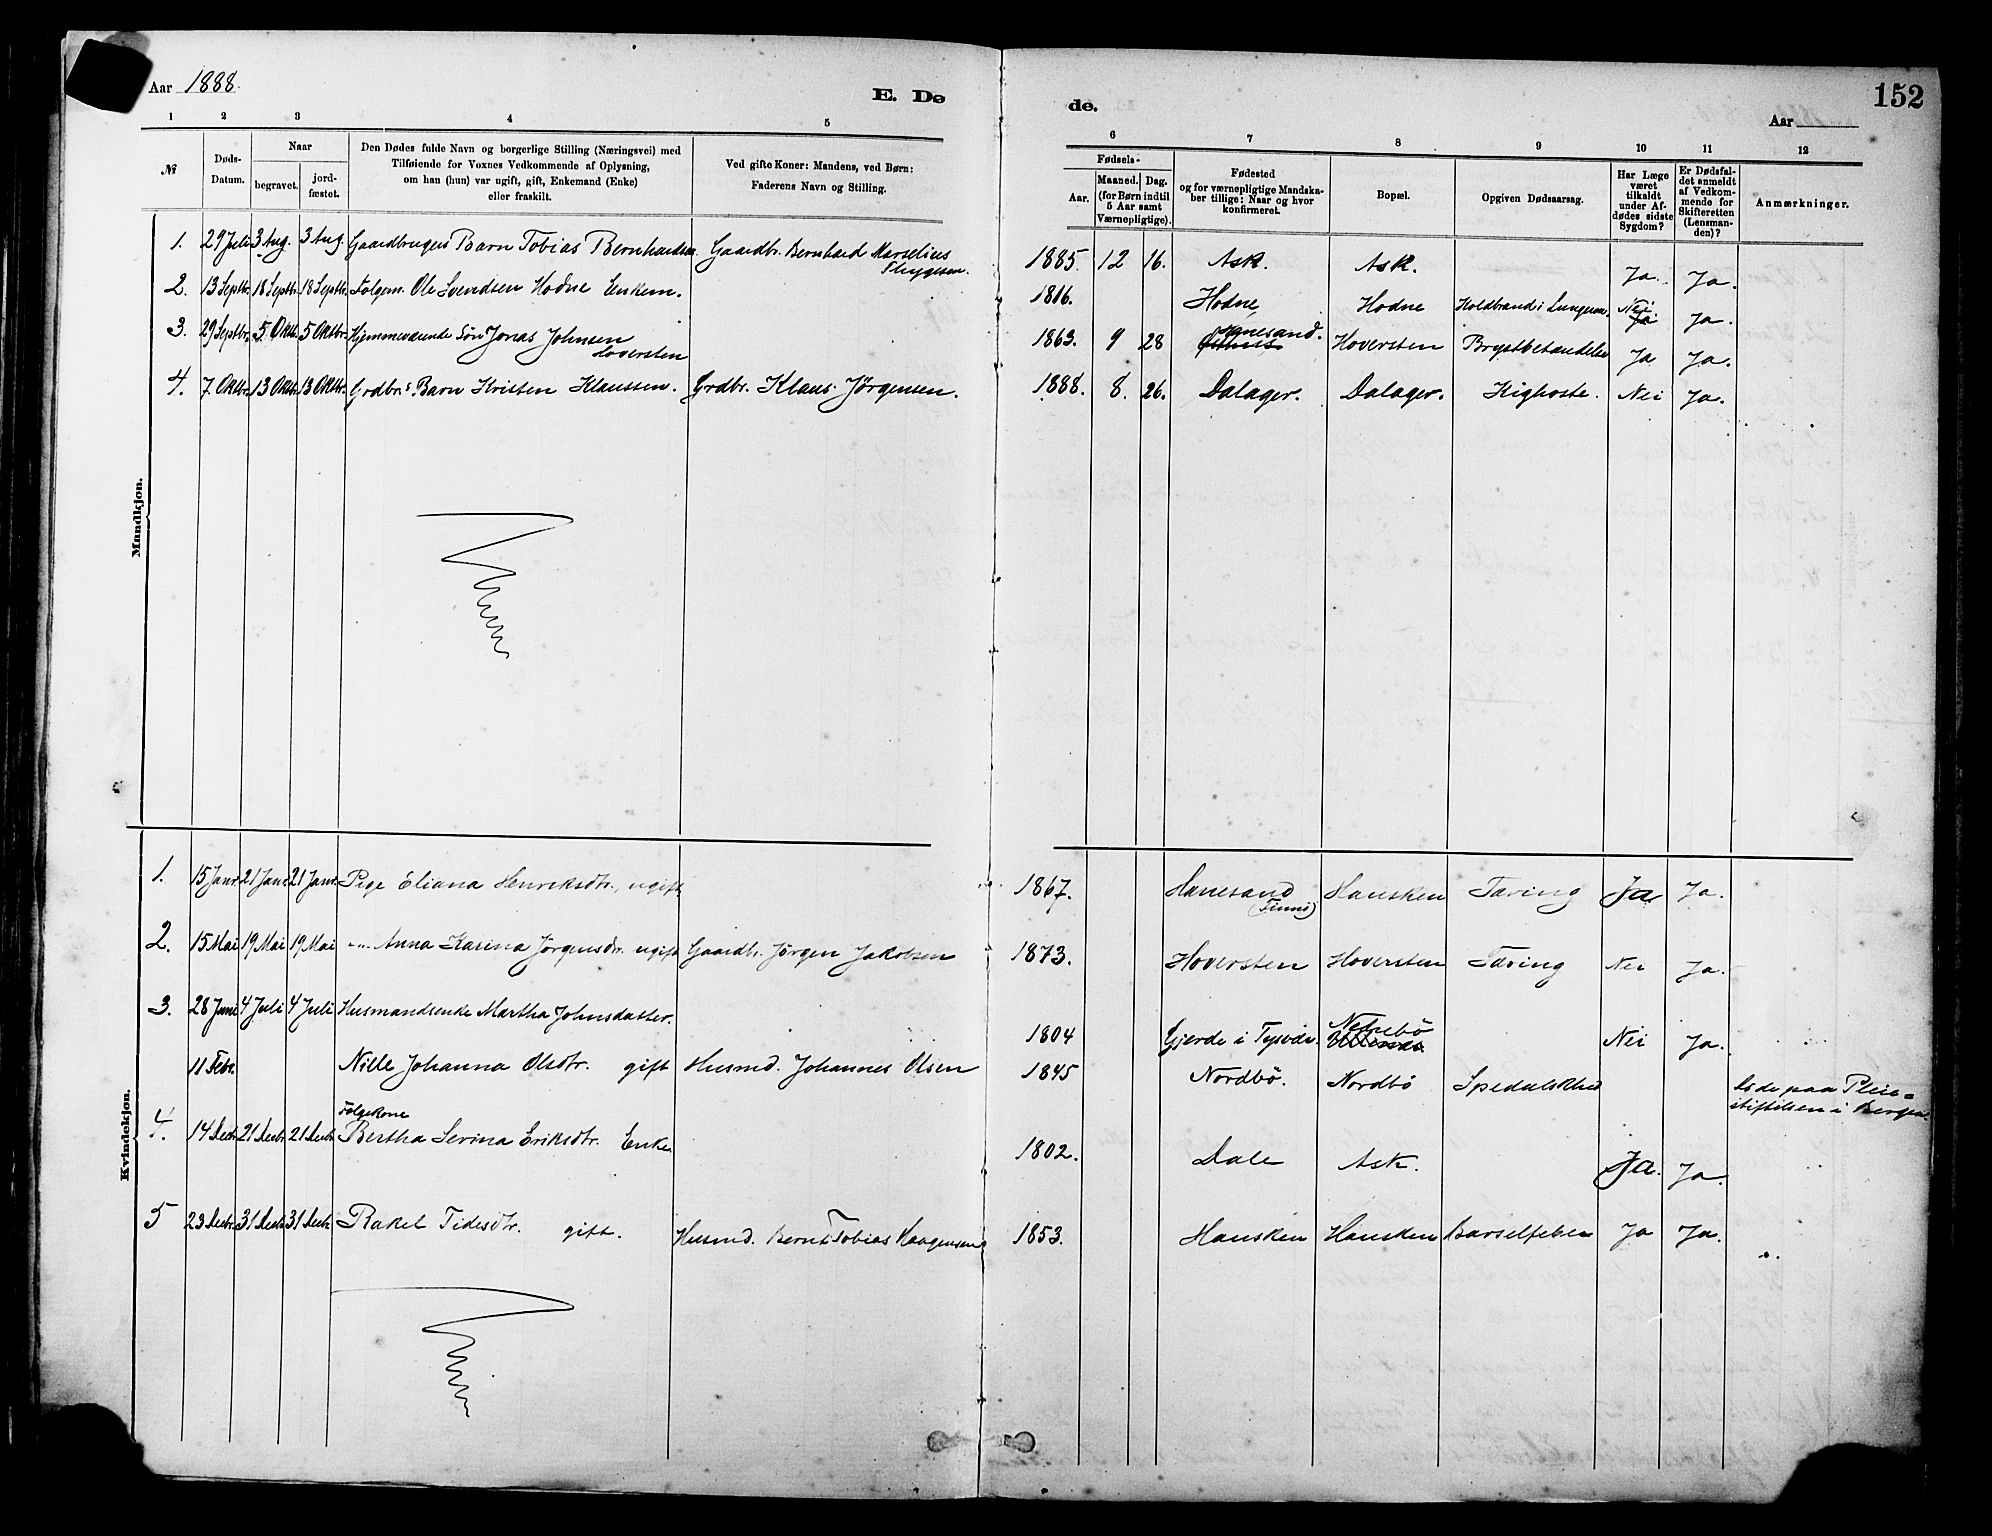 Aar 1888.
E. Dø
de.
152
Aar
1 2 3 4 5
6 7 8 9 10 11 12
№
Døds-
Datum.
Naar
begravet.
jord-
fæstet.
Den Dødes fulde Navn og borgerlige Stilling (Næringsvei) med
Tilføiende for Voxnes Vedkommende af Oplysning,
om han (hun) var ugift, gift, Enkemand (Enke)
eller fraskilt.
Ved gifte Koner: Mandens, ved Børn:
Faderens Navn og Stilling.
Fødsels-
Aar.
Maaned.
Dag.
(for Børn indtil
5 Aar samt
Værnepligtige).
Fødested
og for værnepligtige Mandska-
ber tillige: Naar og hvor
konfirmeret.
Bopæl.
Opgiven Dødsaarsag.
Har Læge
været
tilkaldt
under Af-
dødes sidste
Sygdom?
Er Dødsfal-
det anmeldt
af Vedkom-
mende for
Skifteretten
(Lensman-
den)?
Anmærkninger.
Mandkjøn.
1. 29 Juli 3 Aug. 3 Aug. Gaardbrugers Barn Tobias Bernhardsen Gaardbr. Bernhard Marselius
Thygesen. 1885. 12 16. Ask. Ask. Ja. Ja.
2. 13 Septbr. 18 Septbr. 18 Septbr. Folgem. Ole Svendsen Hodne Enkem. 1816. Hodne Hodne Koldbrand i Lungerne. Nei Ja Ja.
3. 29 Septbr. 5 Oktbr. 5 Oktbr. Hjemmeværende Søn Jonas Johnsen
Hoversten 1863. 9 28 Hanesand. Hoversten Brystbetændelse Ja Ja.
4. 7. Oktbr. 13 Oktbr. 13 Oktbr. Grdbr.s Barn Kristen Klaussen. Grdbr. Klaus Jørgensen. 1888. 8. 26. Dalager. Dalager. Kighoste. Nei Ja.
Kvindekjøn.
1. 15 Janr. 21 Janr. 21 Janr. Pige Eliana Henriksdtr., ugift 1867. Hanesand
(Finnö) Hausken Tæring Ja Ja.
2. 15 Mai 19 Mai 19 Mai -"- Anna Karina Jørgensdtr. ugift Gaardbr. Jørgen Jakobsen 1873. Hoversten Hoversten Tæring Nei Ja.
3. 28 Juni 4 Juli 4 Juli Husmandsenke Martha Johnsdatter. 1804 Gjerde i Tysvær. Nei Ja.
11 Febr. Nille Johanna Olsdtr. gift Husmd. Johannes Olsen 1845 Nordbö. Nordbö Spedalskhed Döde paa Pleie-
stiftelsen i Bergen.
4. 14 Decbr. 21 Decbr. 21 Decbr. Folgekone
Bertha Serina Eriksdtr. Enke 1802. Dale Ask. Ja. Ja.
5 23 Decbr. 31 Decbr. 31 Decbr. Rakel Tidesdtr. gift. Husmd. Bernt Tobias Haagensen 1853. Hausken Hausken Barselfeber Ja Ja.